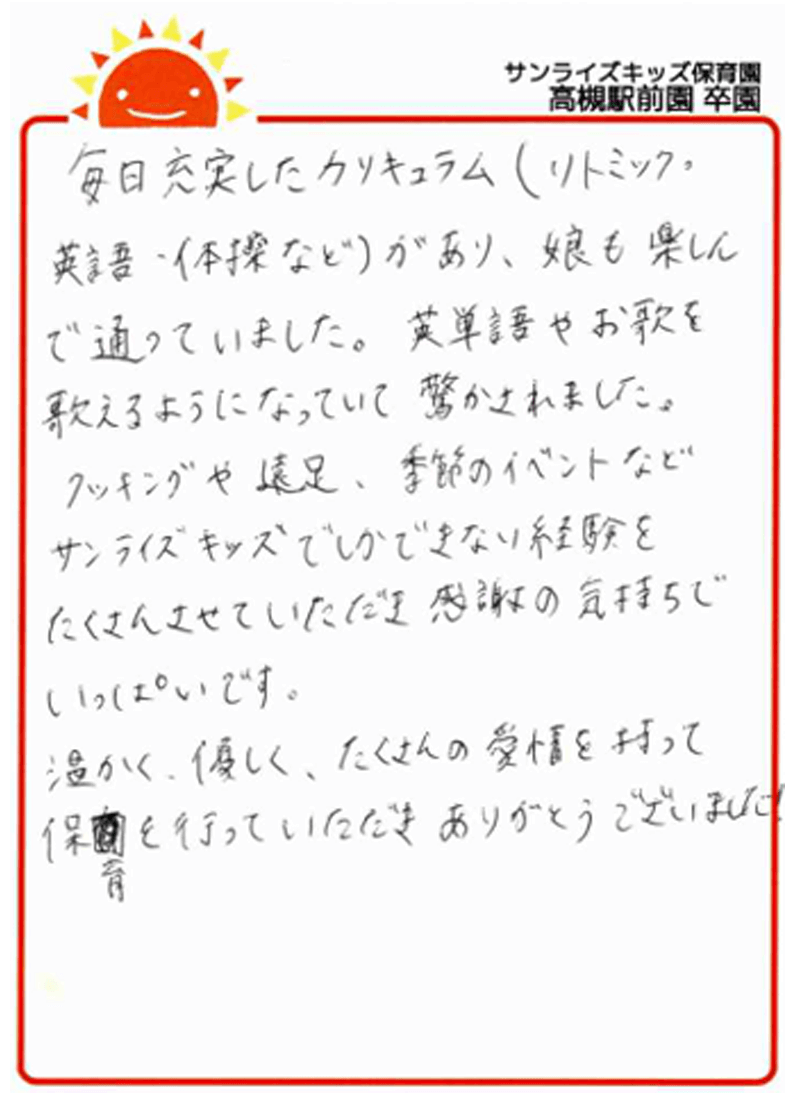 サンライズキッズ保育園
高槻駅前園 卒園
毎日充実したカリキュラム(リトミック・
英語・体操など)があり、娘も楽しん
で通っていました。英単語やお歌を
歌えるようになっていて驚かされました。
クッキングや遠足、季節のイベントなど
サンライズキッズでしかできない経験を
たくさんさせていただき感謝の気持ちで
いっぱいです。
温かく、優しく、たくさんの愛情を持って
保育を行っていただきありがとうございました!